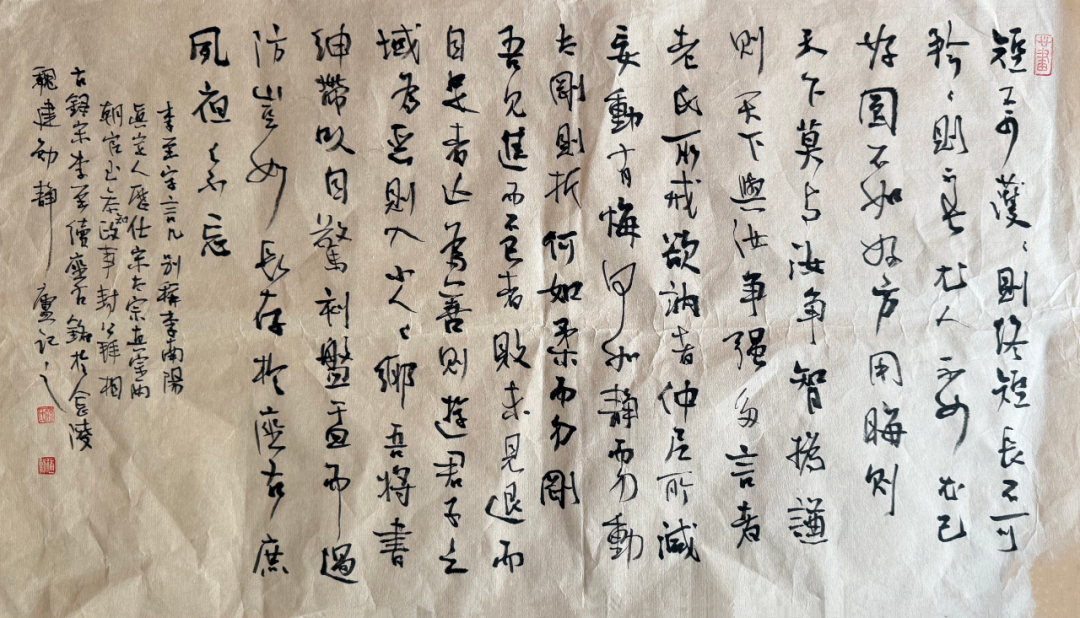 短不可護〻則終短長不可
矜〻則不長尤人不如尤己
好圓不如好方用晦则
天下莫与汝争智撝謙
則天下與汝争强多言者
老氏所戒欲訥者仲尼所臧
妄動有悔何如静而勿動
太剛則折何如柔而勿剛
吾見進而不已者敗未見退而
自足者亡為善則遊君子之
域為惡則入小人〻鄉吾將書
紳帶以自警刻盤盂而過
防豈如長存於座右庶
夙夜之不忘
李至字言几別稱李南陽
真定人歷仕宋太宗真宗两
朝官至參知政事封拜相
右錄宋李至續座右銘於金陵
魏建勁静廬記之